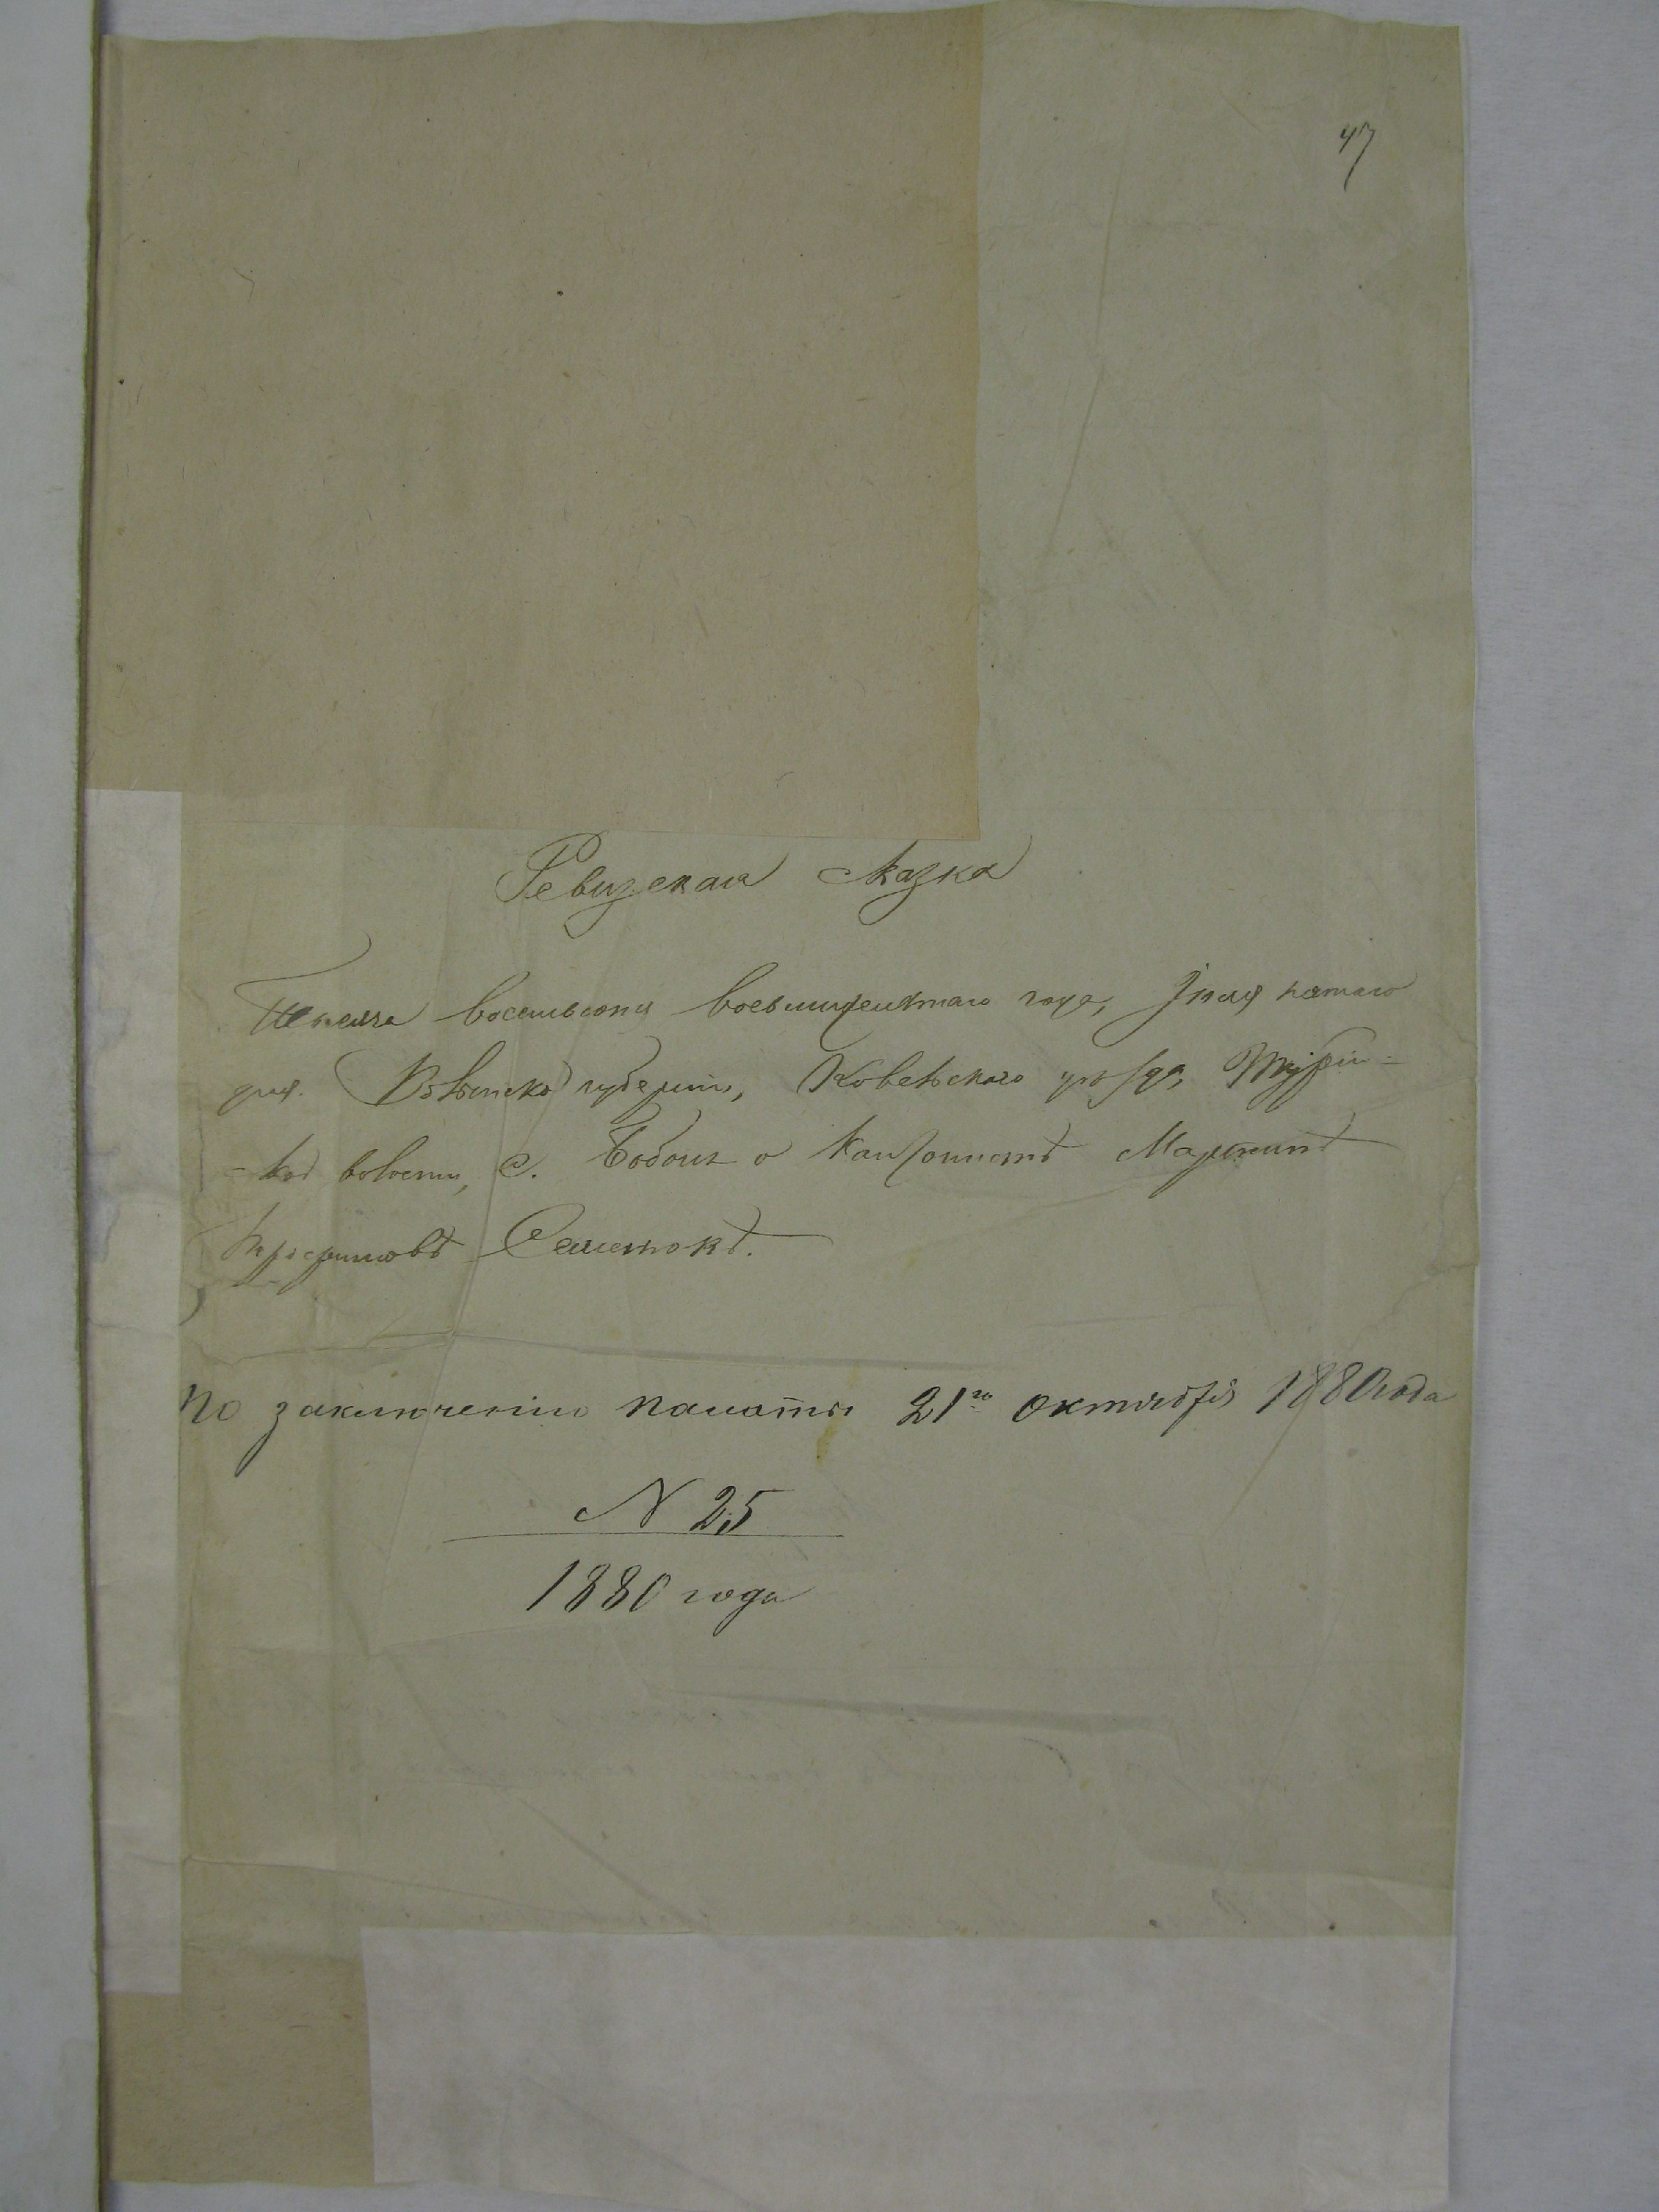 47
Ревизская сказка
Тысяча восемьсотъ восьмидесятаго года, Іюля пятаго
дня. Волынской губерніи, Ковельскаго уѣзда, Турій-
ской волости, С. о колонистѣ Мартинѣ
По заключенію палаты 21го октября 1880 года
N 25
1880 года